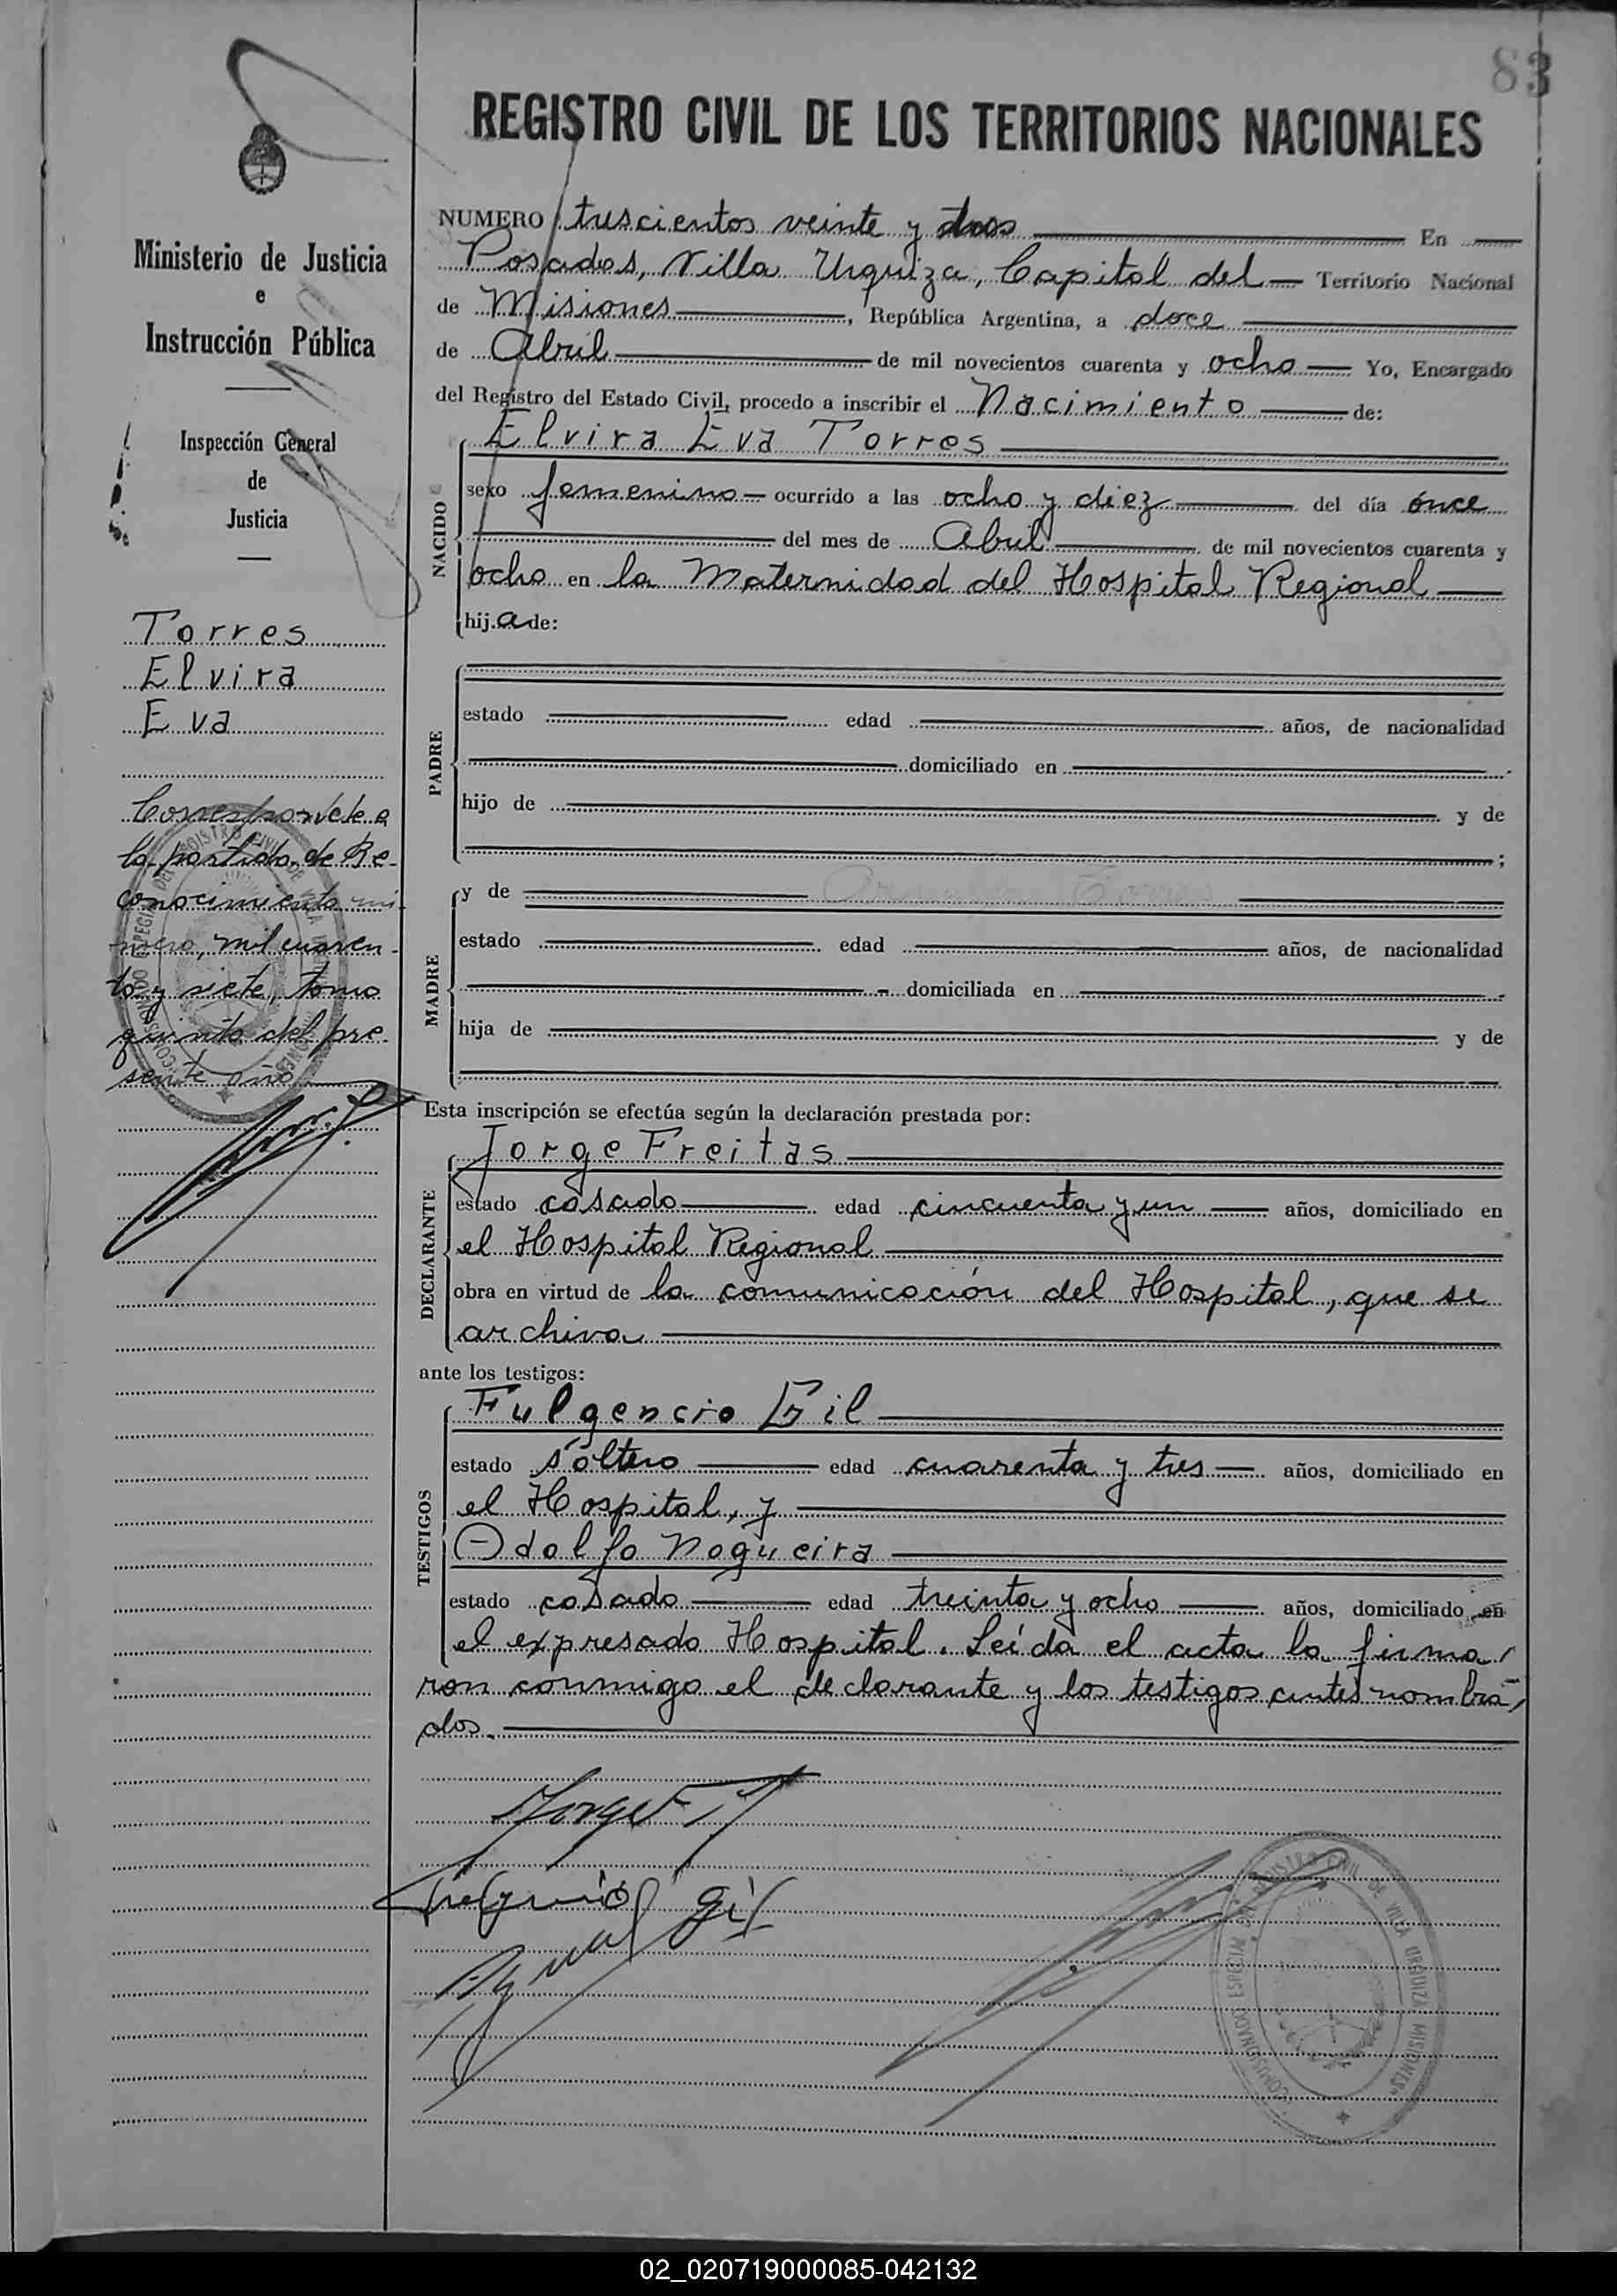 83
REGISTRO CIVIL DE LOS TERRITORIOS NACIONALES
Ministerio de Justicia
e
Instrucción Pública
Inspección General
de
Justicia
Torres
Elvira
Eva
Corresponde a
la partida de Re-
conocimiento nú-
mero, mil cuaren-
ta y siete, tomo
quinto del pre-
sente año
NUMERO trescientos veinte y dos En
Posadas, Villa Urquiza, Capital del Territorio Nacional
de Misiones, República Argentina, a doce
de Abril de mil novecientos cuarenta y ocho Yo, Encargado
del Registro del Estado Civil, procedo a inscribir el Nacimiento de:
NACIDO
Elvira Eva Torres
sexo femenino ocurrido a las ocho y diez del día once
del mes de Abril de mil novecientos cuarenta y
ocho en la Maternidad del Hospital Regional
hija de:
PADRE
estado edad años, de nacionalidad
domiciliado en
hijo de y de
;
MADRE
y de Torres
estado edad años, de nacionalidad
domiciliada en
hija de y de
Esta inscripción se efectúa según la declaración prestada por:
DECLARANTE
Jorge Freitas
estado casado edad cincuenta y un años, domiciliado en
el Hospital Regional
obra en virtud de la comunicación del Hospital, que se
archiva
ante los testigos:
TESTIGOS
Fulgencio Gil
estado soltero edad cuarenta y tres años, domiciliado en
el Hospital, y
Adolfo Nogueira
estado casado edad treinta y ocho años, domiciliado en
el expresado Hospital. Leída el acta la firma
ron conmigo el declarante y los testigos antes nombra
dos.
COMISIONADO ESPECIAL DEL REGISTRO CIVIL DE VILLA URQUIZA MISIONES
02_020719000085-042132